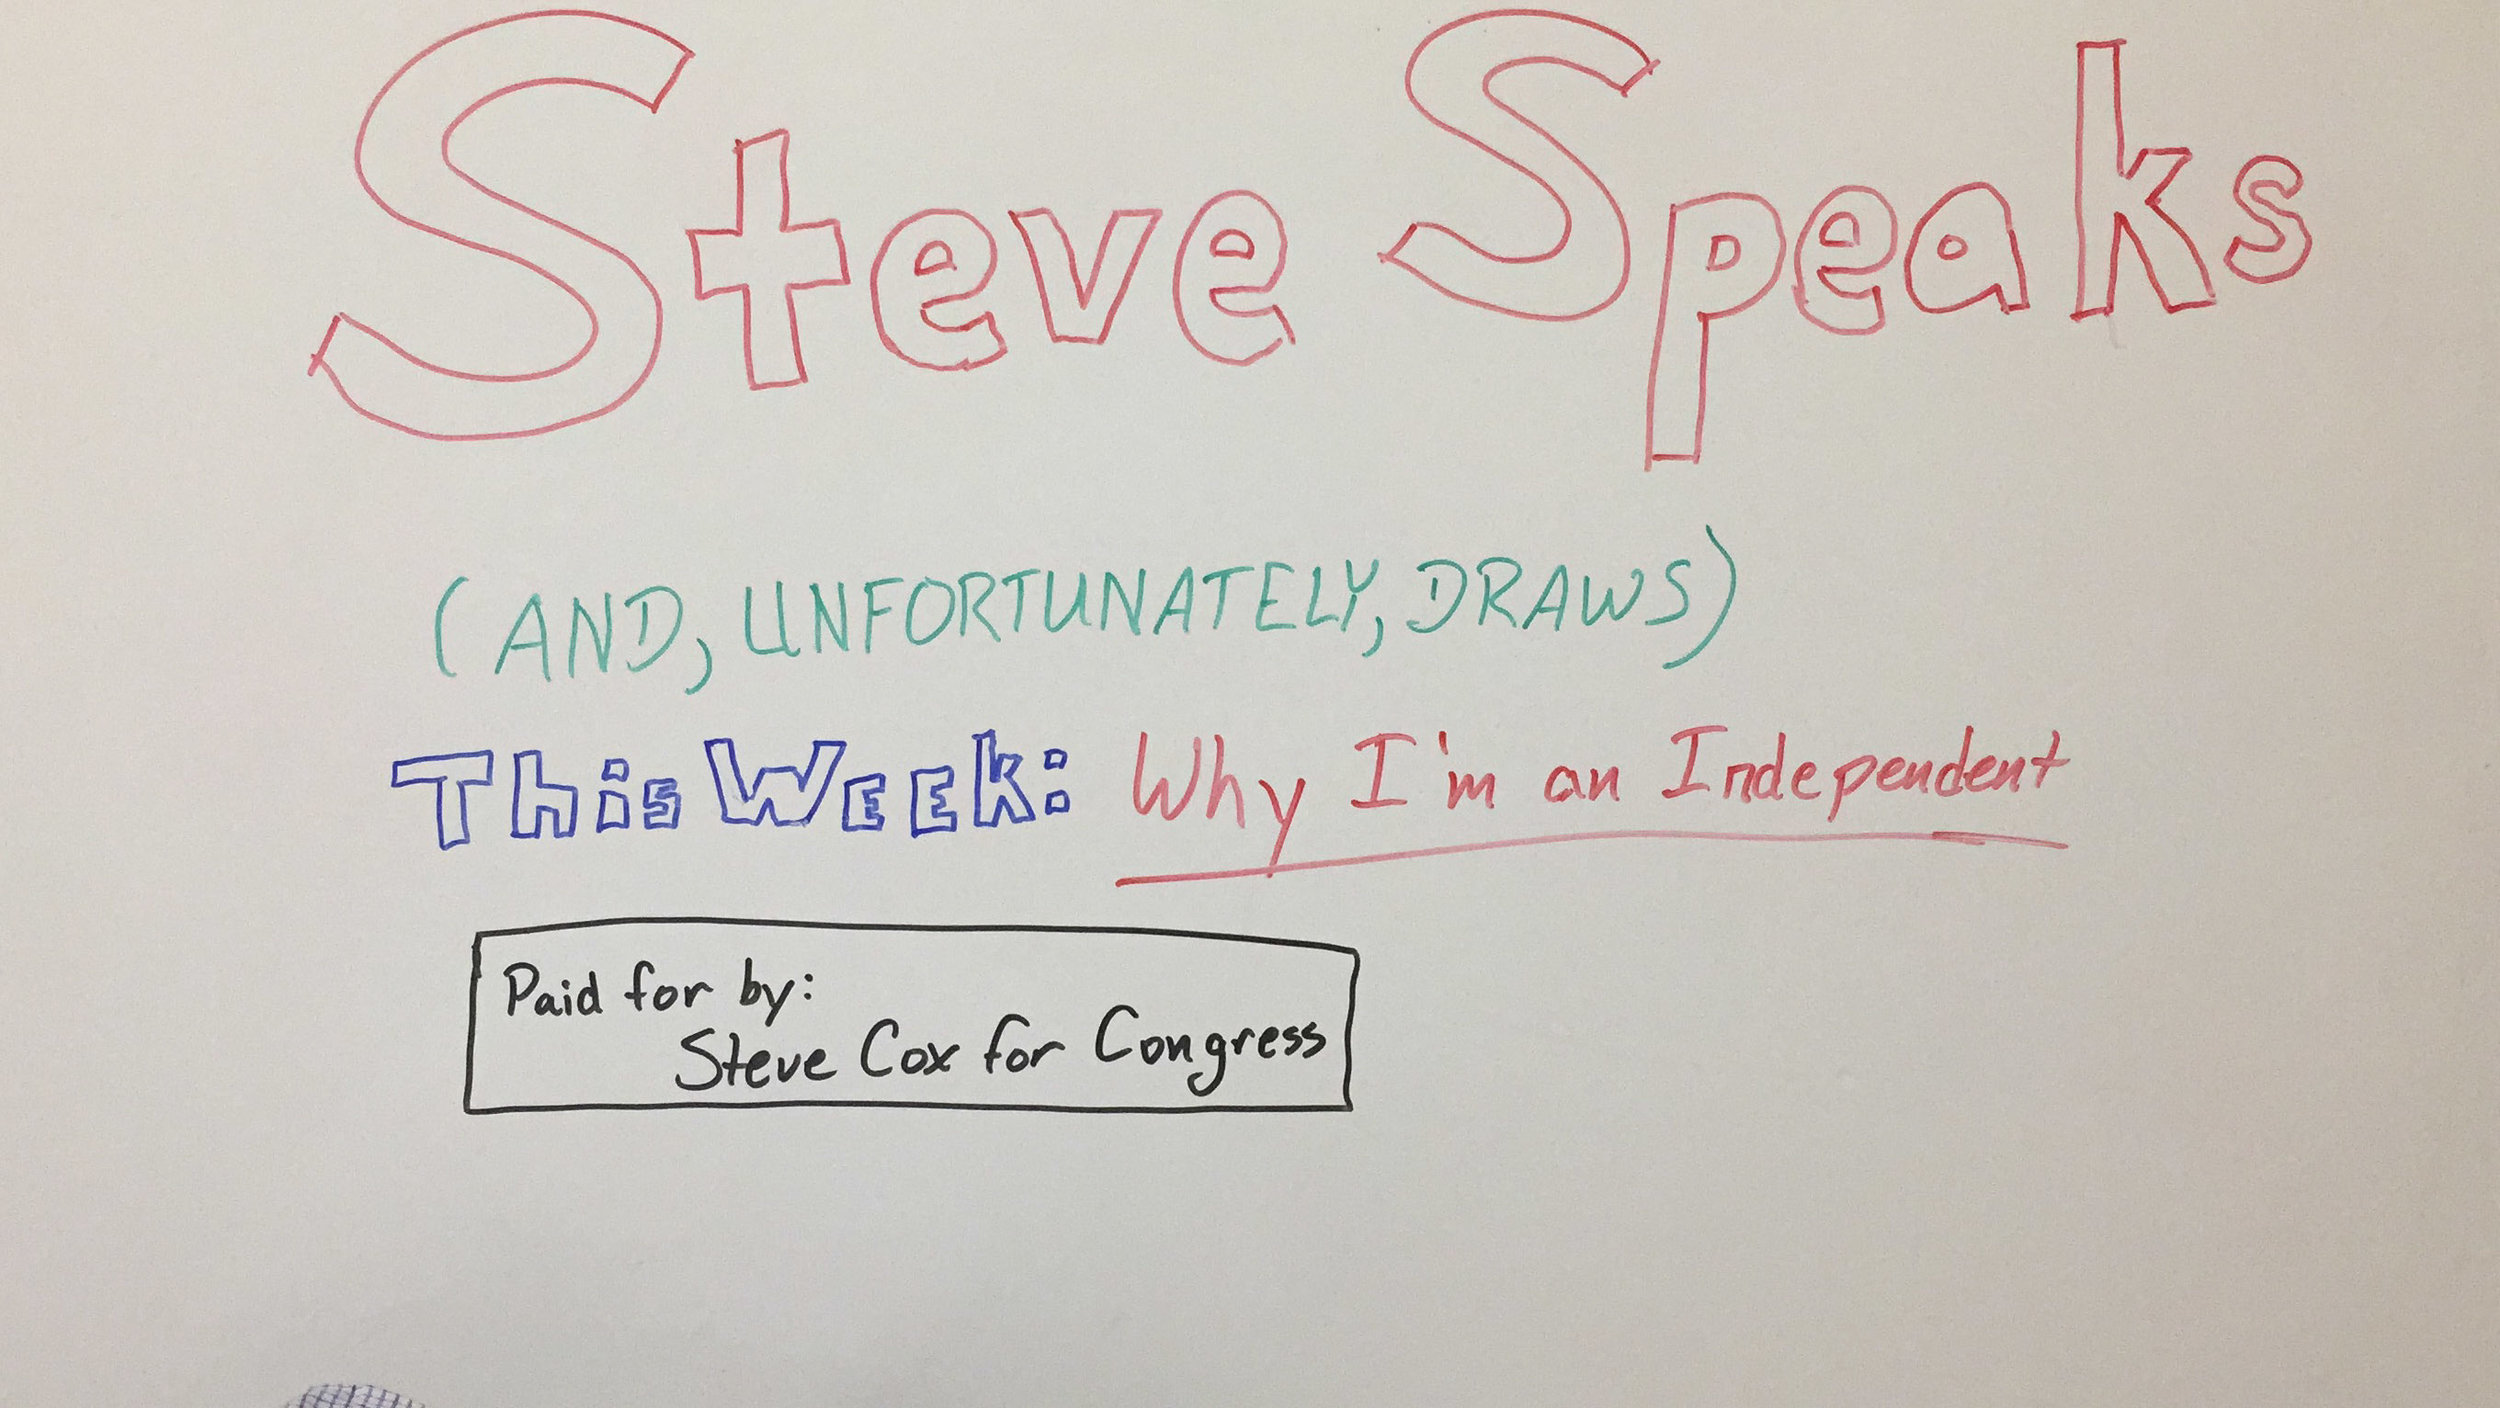 Steve Speaks
(AND, UNFORTUNATELY, DRAWS)
This WEEK: Why I'm an Independent
Paid for by:
Steve Cox for Congress